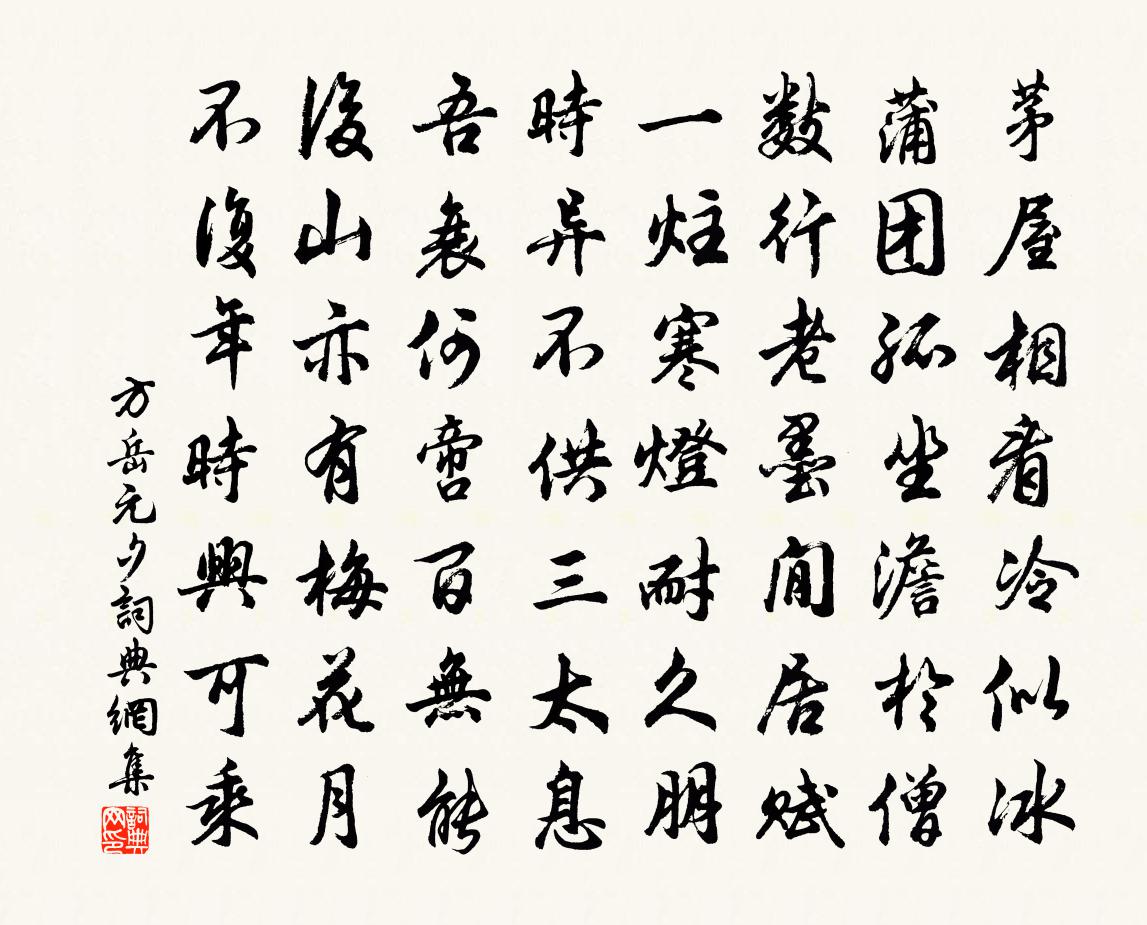 茅屋相看冷似冰
蒲团孤坐澹於僧
数行老墨閒居赋
一炷寒燈耐久朋
時异不供三太息
吾衰何啻百無能
後山亦有梅花月
不復年時興可乘
方岳元夕詞典網集
詞典网印